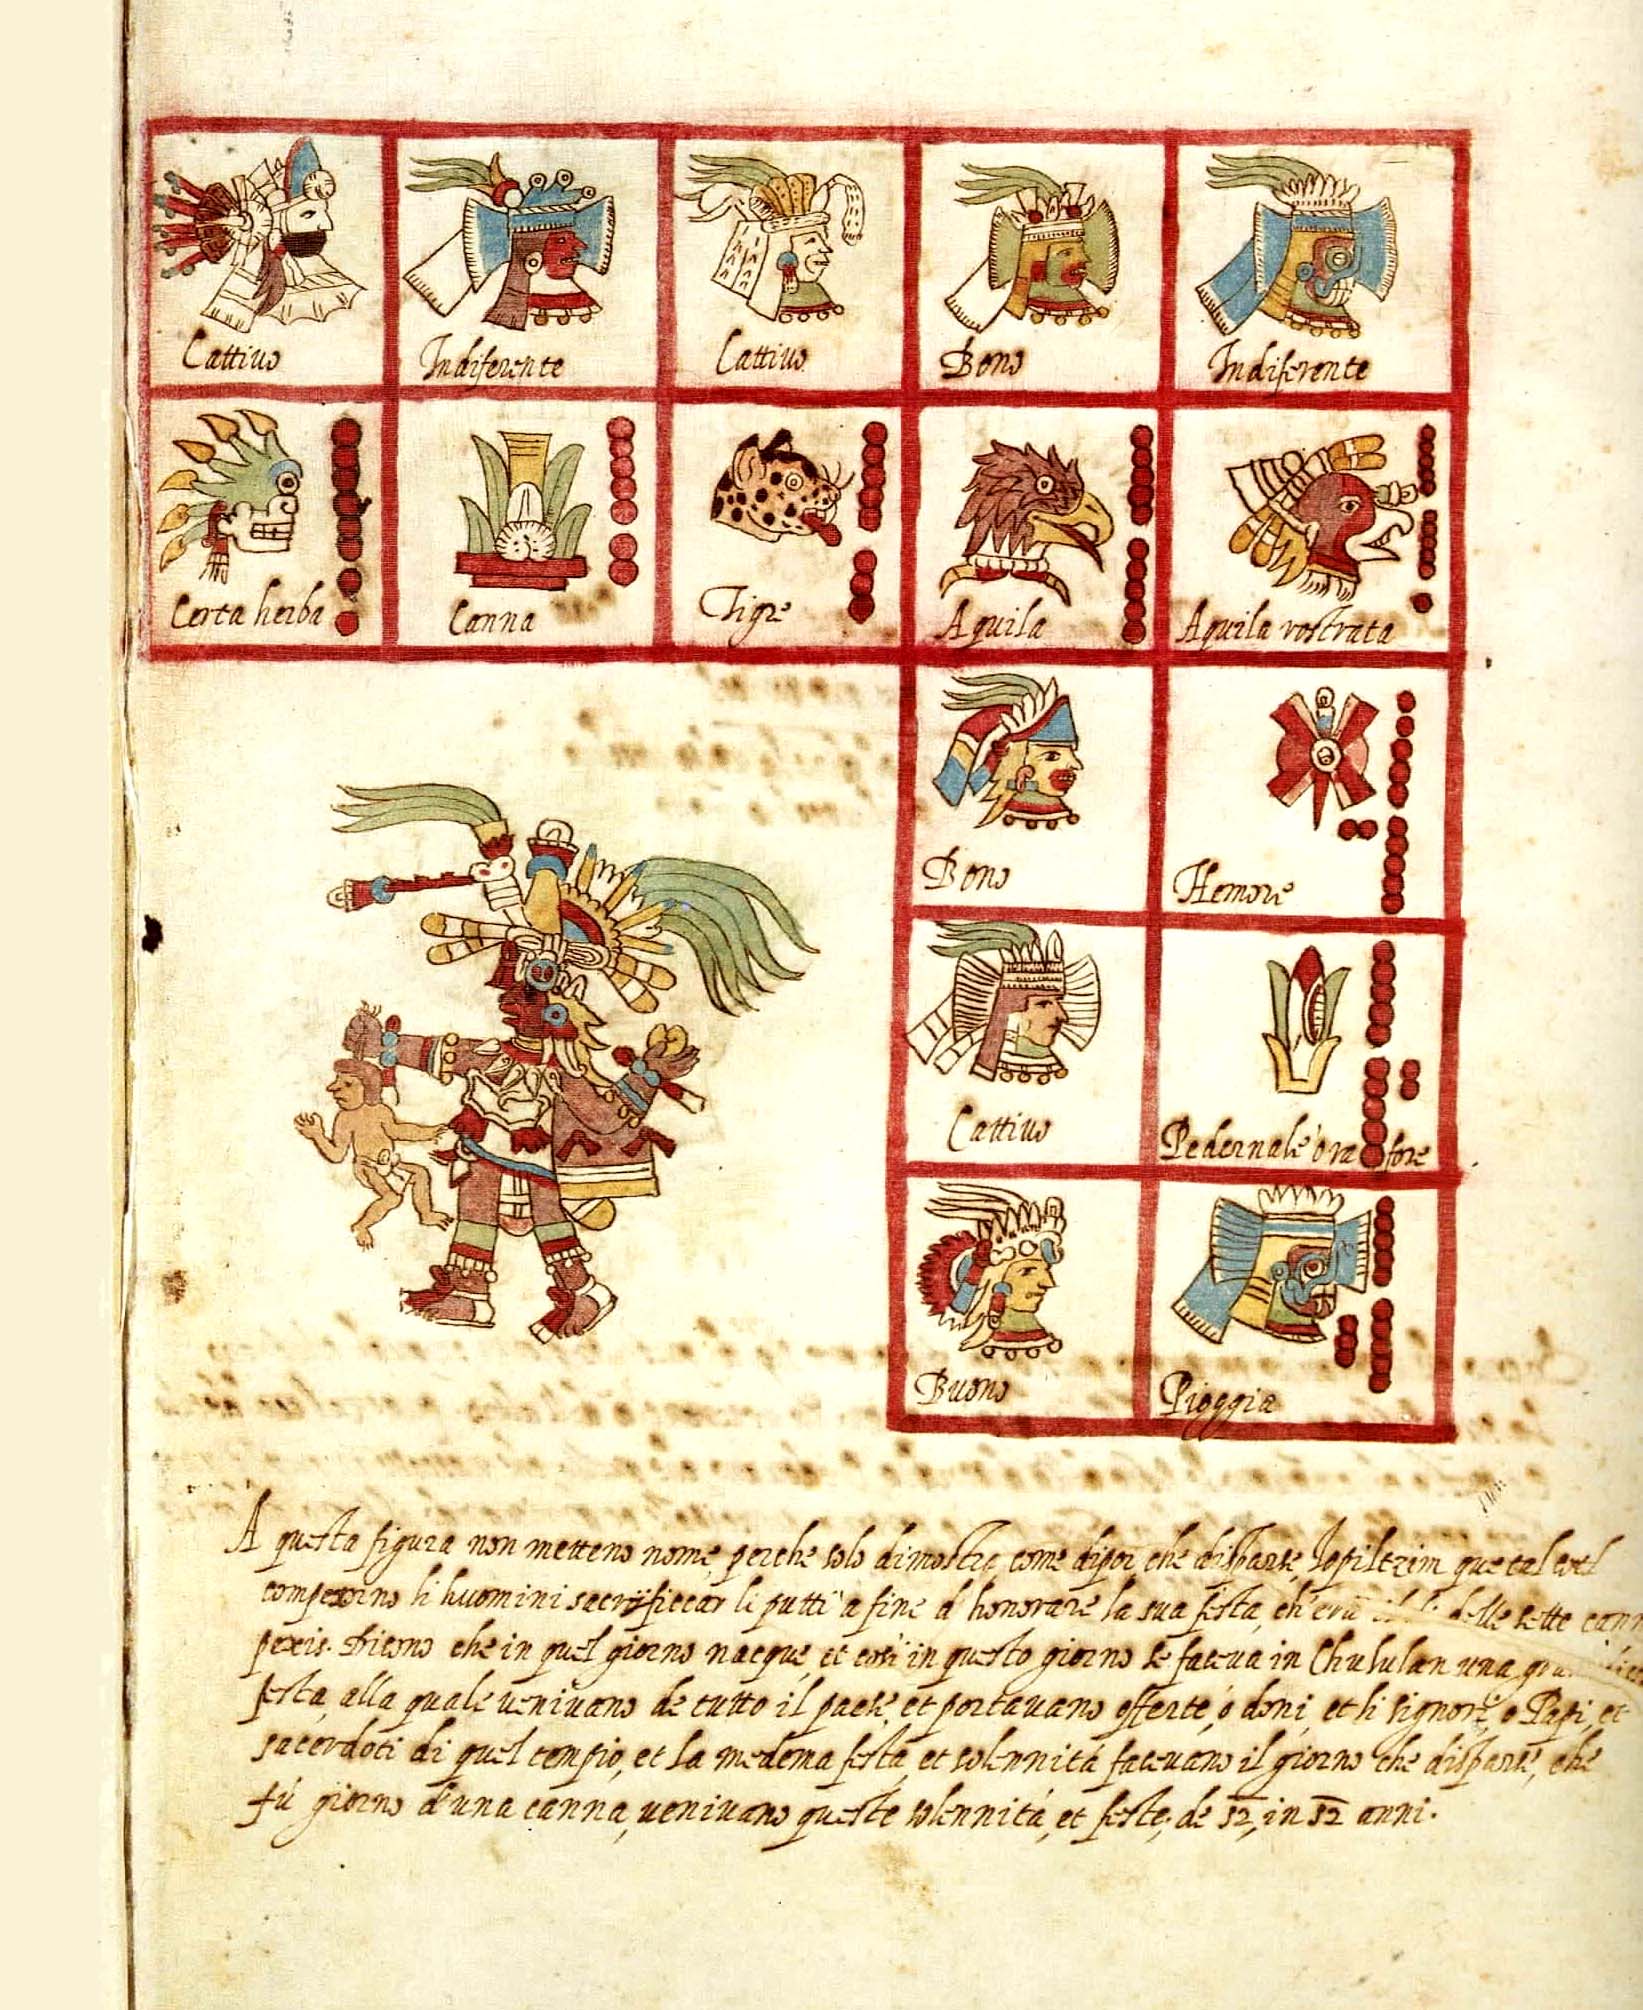 Cattiuo Indiferente Cattiuo Bono Indiferente
Certa herba Canna Tigre Aquila Aquila rostrata
Bono Hemore
Cattiuo Pedernale o ra fore
Buono Pioggia
A questa figura non metteno nome, perche solo dimostra come dipoi che disparse Topiltzim que cal coel
comenzorno li huomini sacrifiecar li putti a fine d'honorare la sua festa, ch'era delle sette cann
Dicono che in quel giorno nacque, et cosi in questo giorno se faceua in Chululan una
festa, alla quale ueniuano de tutto il paese, et portauano offerte, o doni, et li signori, o Papi, et
sacerdoti di quel tempio, et la medema festa, et solennita faceuano il giorno che disparse, che
fù giorno d'una canna, ueniuano queste solennità, et feste, de 52, in 52 anni.